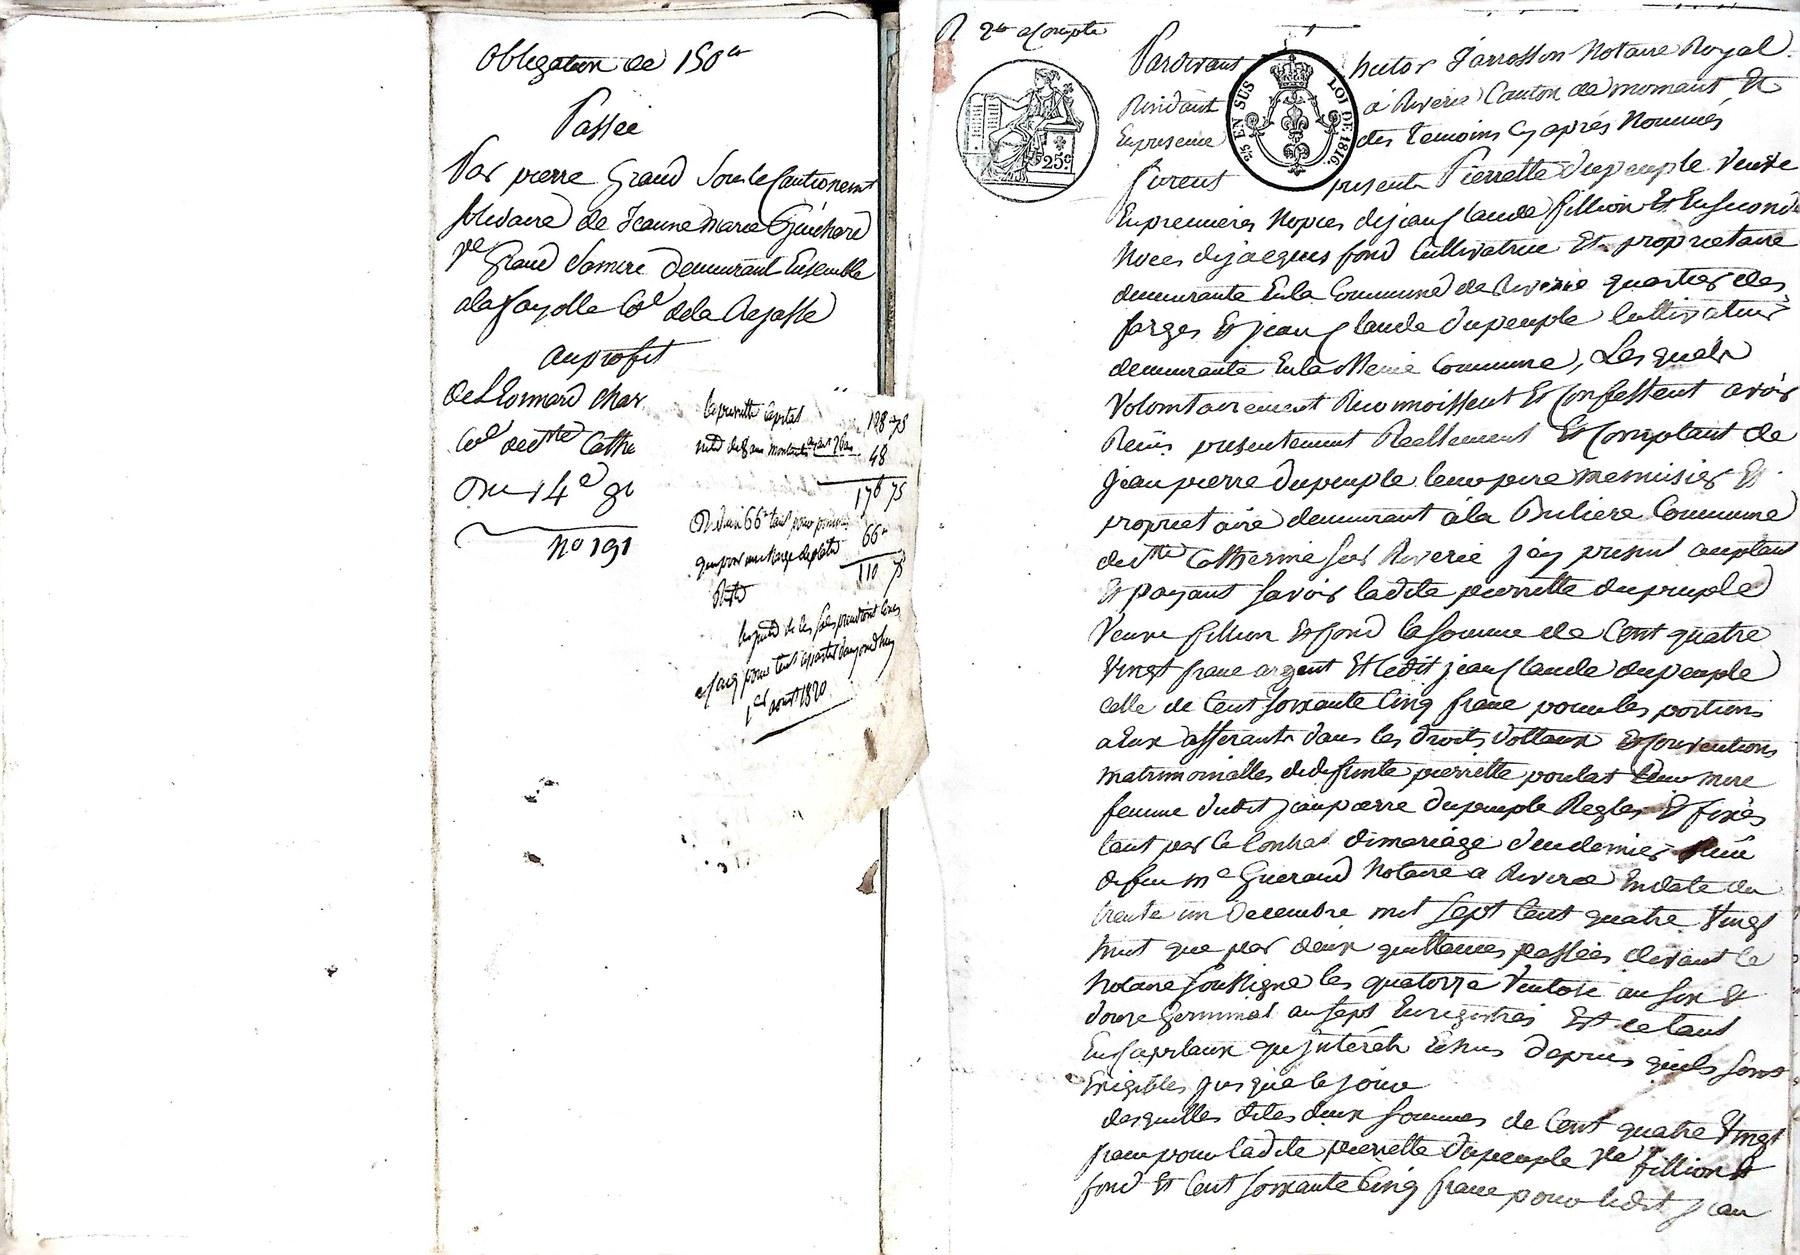 Obligation de 150 fr
Passée
Par pierre Grand sous le Cautionemt
solidaire de Jeanne Marie Guichard
ve Grand sa mere demeurant Ensemble
a la fayolle Coe de la Rajasse
au profit
de Leonnard Char
Coe de Ste Cathe
Du 14e
No 191
la pierrette Capital 128 75
48
176 75
66
110 75
Reste
1er aout 1820
2de a Compte
25c
2/5 EN SUS
LOI DE 1816.
Pardevant hector Jarrosson Notaire Royal
Residant à Riverie Canton de mornant Et
En presence des temoins cy après Nommés
furent presents Pierrette dupeuple Veuve
En premieres Nopces de jean Claude fillion Et En seconde
Noces de jacques fond Cultivatrice Et proprietaire
demeurante En la Commune de Riverie quartier des
farges Et jean Claude dupeuple Cultivateur
demeurante En la Meme Commune, Les quels
Volontairement Reconnoissent Et Confessent avoir
Reçus presentement Reellement Et Comptant de
Jean pierre dupeuple leur pere menuisier Et
proprietaire demeurant à la Buliere Commune
de Ste Catherine sur Riverie jcy present acceptant
Et payant savoir ladite pierrette dupeuple
Veuve fillion Et fond la somme de Cent quatre
Vingt franc argent Et Ledit jean Claude dupeuple
celle de Cent soixante Cinq franc pour les portions
a Eux afferants dans les droits dottaux Et Conventions
matrimonialles de defunte pierrette poulat leur mere
femme dudit jean pierre dupeuple Reglés Et fixés
tant par le Contrat de mariage d'eu dernier Recu
de feu me Gueraud Notaire a Riverie En date du
trente un Decembre mil sept Cent quatre Vingt
huit que par deux quittances passées devant le
Notaire soussigné les quatorze Ventose an six Et
douze Germinal an sept Enregistrés Et ce tant
En Capitaux qu'jntérêts Echus depuis qu'ils sont
Exigibles jusque le jour
desquelles dites deux sommes de Cent quatre Vingt
franc pour ladite pierrette dupeuple ve fillion Et
fond Et Cent soixante Cinq franc pour ledit jean